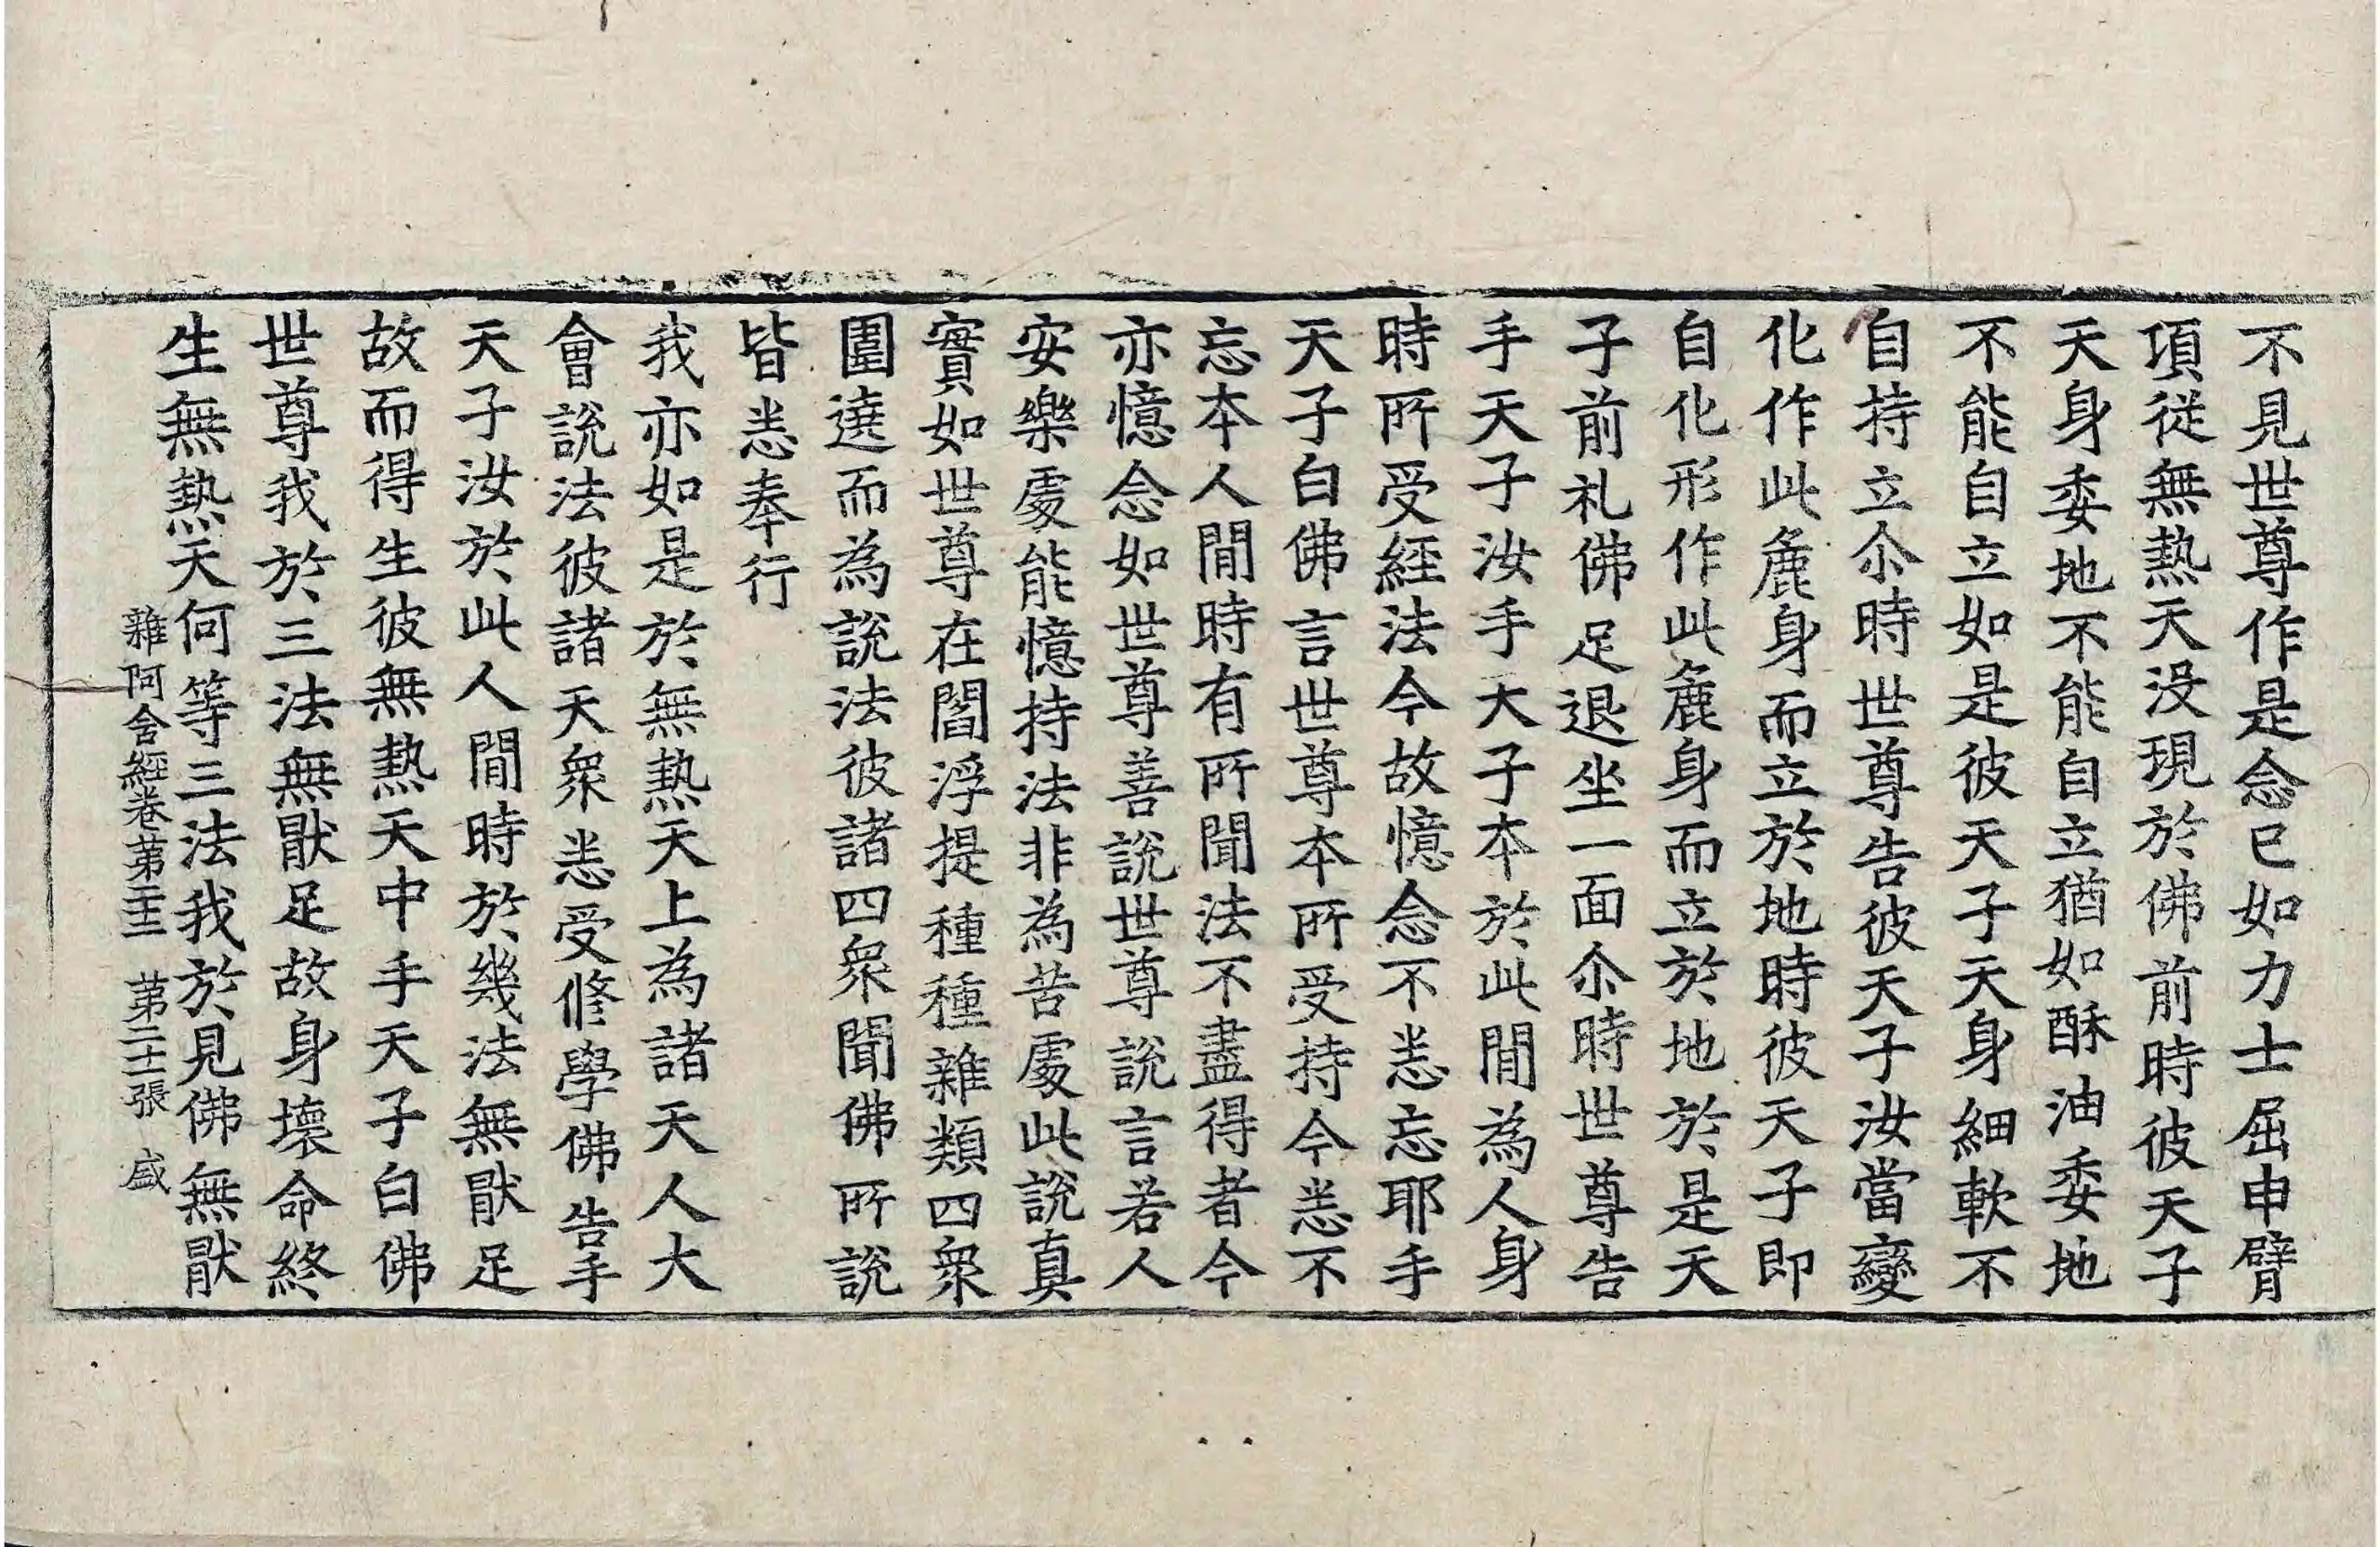 不見世尊作是念已如力士屈申臂
項從無熱天没現於佛前時彼天子
天身委地不能自立猶如酥油委地
不能自立如是彼天子天身細軟不
自持立尒時世尊告彼天子汝當變
化作此麁身而立於地時彼天子即
自化形作此麁身而立於地於是天
子前礼佛足退坐一面尒時世尊告
手天子汝手大子本於此間為人身
時所受經法今故憶念不悉忘耶手
天子白佛言世尊本所受持今悉不
忘本人間時有所聞法不盡得者今
亦憶念如世尊善說世尊說言若人
安樂處能憶持法非為苦處此說真
實如世尊在閻浮提種種雜類四衆
圍遶而為說法彼諸四衆聞佛所說
皆悉奉行
我亦如是於無熱天上為諸天人大
會說法彼諸天衆悉受修學佛告手
天子汝於此人間時於幾法無猒足
故而得生彼無熱天中手天子白佛
世尊我於三法無猒足故身壞命終
生無熱天何等三法我於見佛無猒
雜阿含經卷苐二十二 苐二十一張 盛